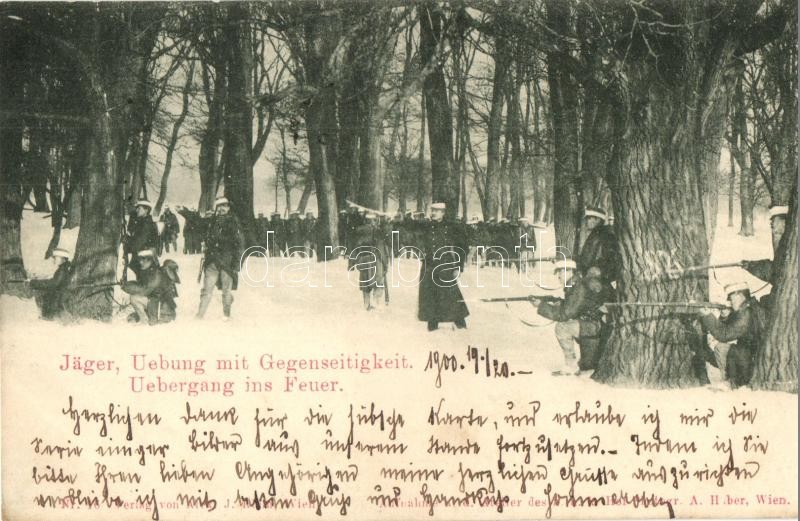 darabanth
Jäger, Uebung mit Gegenseitigkeit.
Uebergang ins Feuer.
1900. 19./I 20.–
Herzlichen Dank für die hübsche Karte, und erlaube ich mir die
Serie einiger Bilder aus unserem Stande fortzusetzen.– Indem ich Sie
bitte Ihren lieben Angehörigen meine herzlichen Grüsse auszurichten
verbleibe ich mit bestem Gruß und Handkuß
Verlag von J. Wien. Aufnahme des A. Huber, Wien.